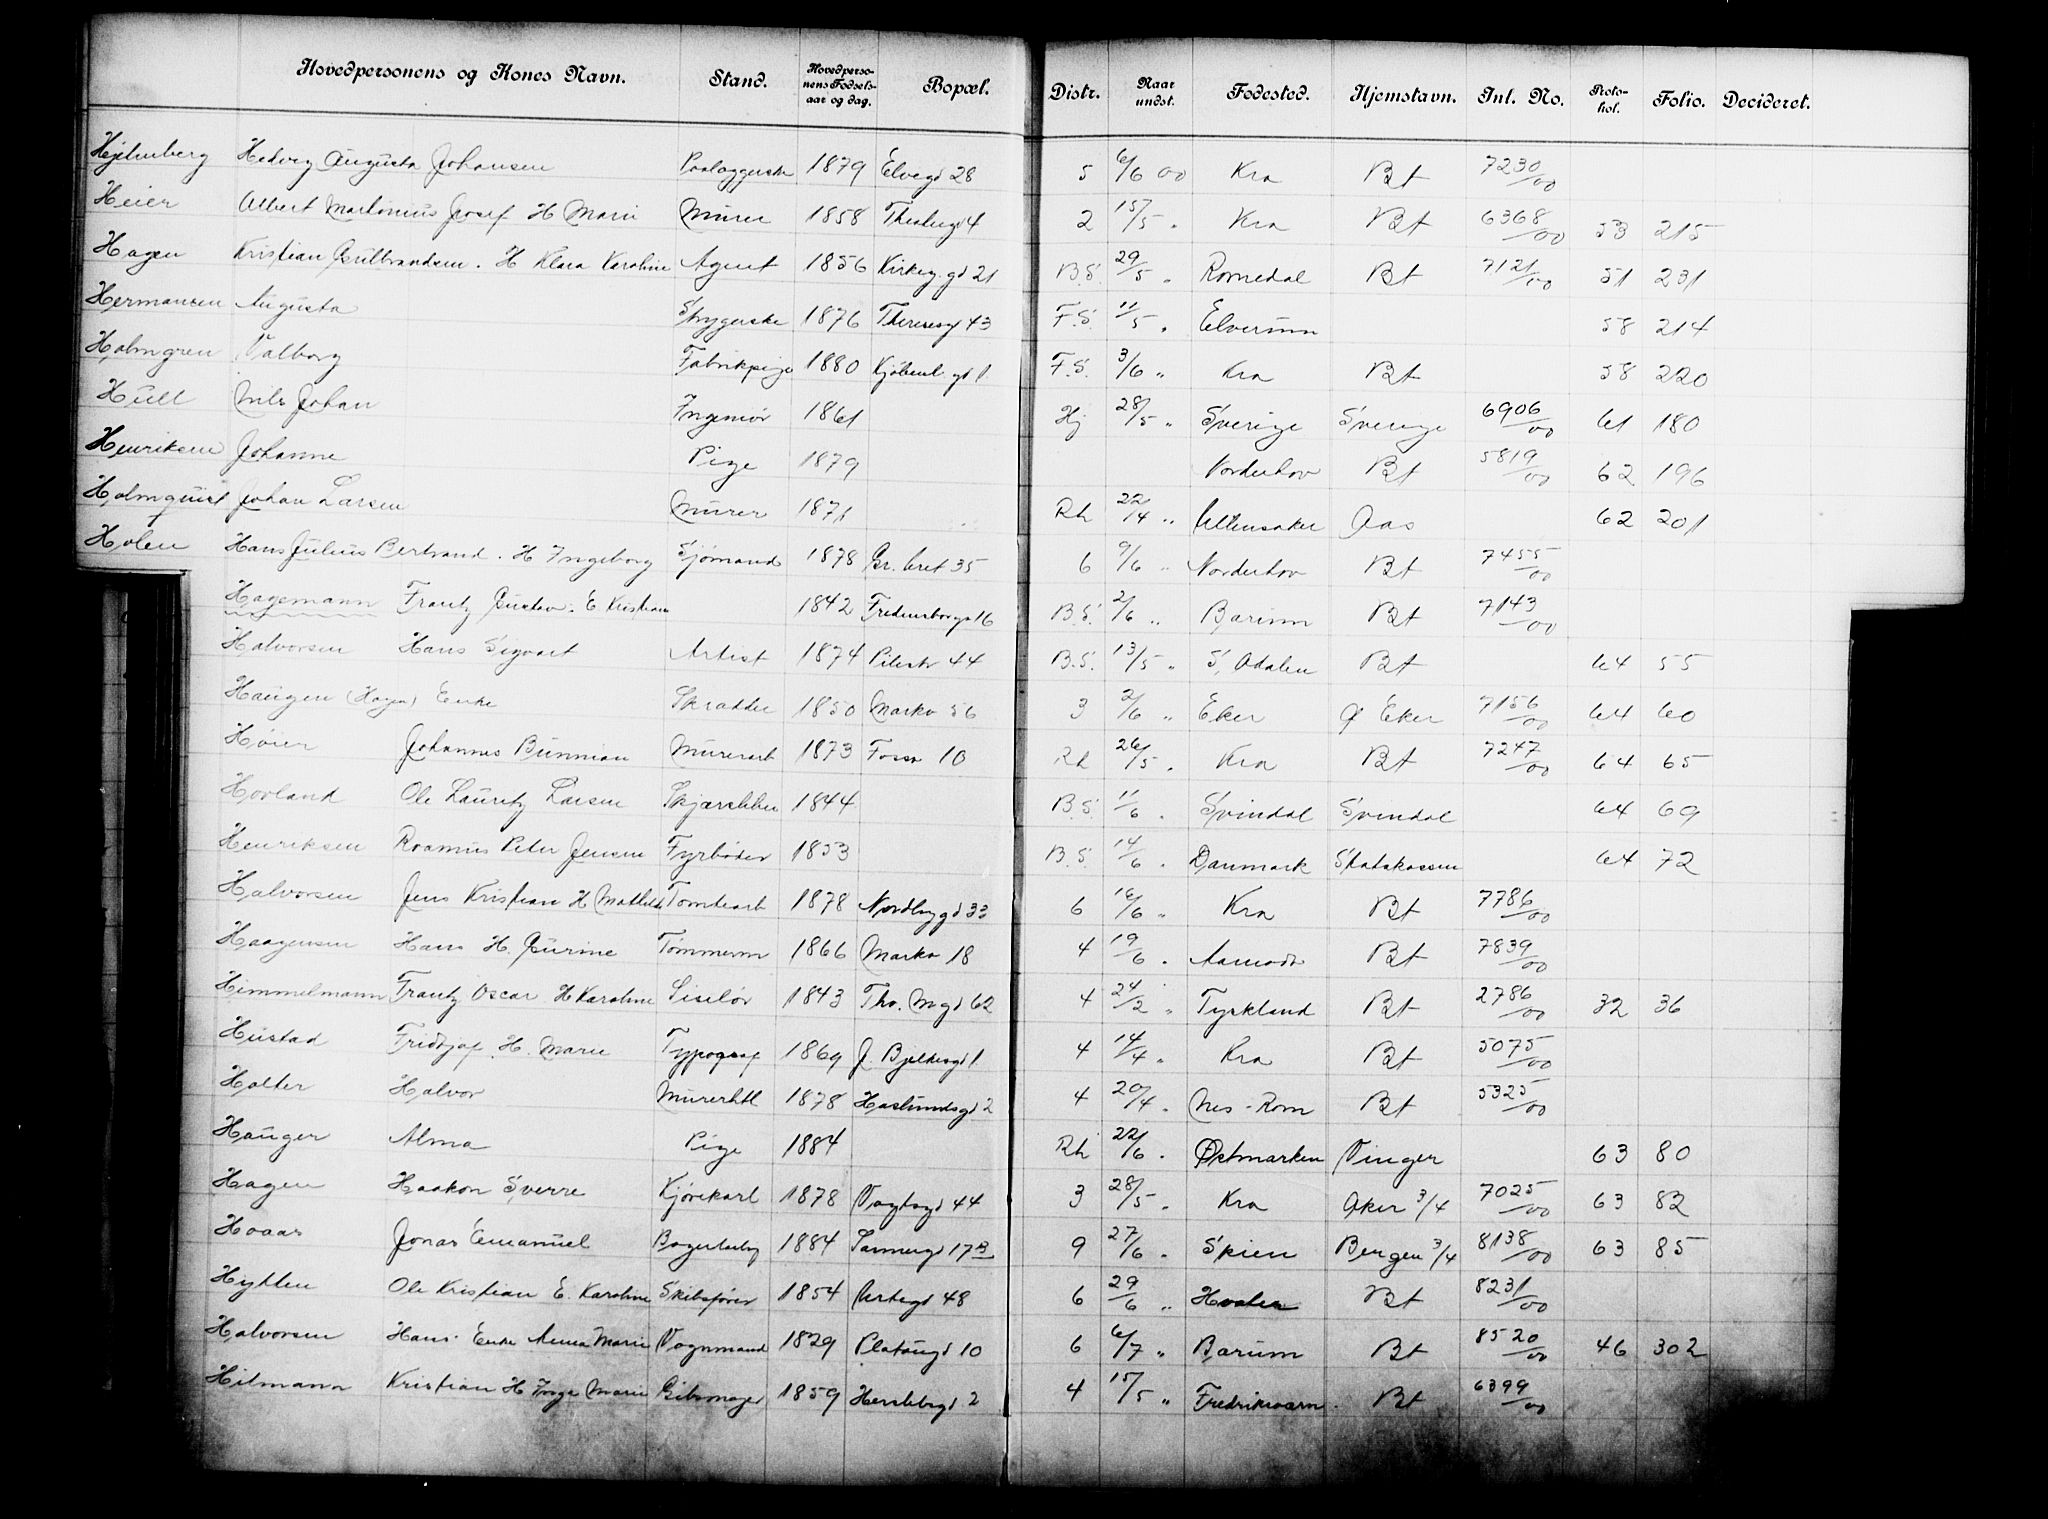 Hovedpersonens og Kones Navn. Stand. Hovedpersonens Fødselsaar og dag. Bopæl. Distr. Naar undst. Fødested. Hjemstavn. Inl. No. Protokol. Folio. Decideret.
Hjelmberg Hedvig Augusta Johansen 1879 Elvegd 28 5 6/6 00 Kra Bt 7230/00
Heier Albert Martonius Josef H Marie Murer 1858 Theatergd 4 2 15/5 „ Kra Bt 6368/00 53 215
Hagen Kristian Gulbrandsen. H Klara Karoline Agent 1856 Kirkeg.gd 21 B.S. 29/5 „ Romedal Bt 7121/00 51 231
Hermansen Augusta Strygerske 1876 Theresesgd 43 F.S. 11/5 „ Elverum 58 214
Holmgren Valborg Fabrikpige 1880 Kjøbenh.gd 1 F.S. 3/6 „ Kra Bt 58 220
Hull Nils Johan Ingeniør 1861 Hj 28/5 „ Sverige Sverige 6906/00 61 180
Henriksen Johanne Pige 1879 Norderhov Bt 5819/00 62 196
Holmquist Johan Larsen Murer 1871 Rh 22/4 „ Ullensaker Aas 62 201
Holen Hans Julius Bertrand. H Ingeborg Sjømand 1878 Gr. leret 35 6 9/6 „ Norderhov Bt 7455/00
Hagemann Frantz Gustav. E Kristiane 1842 Fredensborgv 16 B.S. 2/6 „ Bærum Bt 7143/00
Halvorsen Hans Sigvart Artist 1874 Pilestr 44 B.S. 13/5 „ S. Odalen Bt 64 55
Haugen (Hagen) Enke Skrædder 1850 Markv 56 3 2/6 „ Eker Ø Eker 7156/00 64 60
Høier Johannes Bunnian Murerarb 1873 Fossv 10 Rh 26/5 „ Kra Bt 7247/00 64 65
Hovland Ole Lauritz Larsen Skjærsliber 1844 B.S. 11/6 „ Svindal Svindal 64 69
Henriksen Rasmus Peter Jensen Fyrbøder 1853 B.S. 14/6 „ Danmark Statskassen 64 72
Halvorsen Jens Kristian H Mathilde Tomtearb 1878 Nordbygd 33 6 16/6 „ Kra Bt 7786/00
Haagensen Hans H. Gurine Tømmerm 1866 Markv 18 4 19/6 „ Aamodt Bt 7839/00
Himmelmann Frantz Oscar H Karoline Siselør 1843 Tho. M gd 62 4 24/2 „ Tyskland Bt 2786/00 32 36
Hustad Fridtjof. H. Marie Typograf 1869 J. Bjelkesgd 1 4 14/4 „ Kra Bt 5075/00
Holter Halvor 1878 Haslundsgd 2 4 20/4 „ Nes - Rom Bt 5325/00
Hauger Alma Pige 1884 Rh 22/6 „ Østmarken Vinger 63 80
Hagen Haakon Sverre Kjørekarl 1878 Vogtsgd 44 3 28/5 „ Kra Aker 3/4 7025/00 63 82
Hoaas Jonas Emanuel 1884 Sannergd 17B 9 27/6 „ Skien Bergen 3/4 8138/00 63 85
Hytten Ole Kristian E. Karoline Skibsfører 1854 Urtegd 48 6 29/6 „ Hvaler Bt 8231/00
Halvorsen Hans. Enke Anna Marie Vognmand 1829 Platougd 10 6 6/7 „ Bærum Bt 8520/00 46 302
Hilmann Kristian H Inga Marie 1859 Herslebsgd 2 4 15/5 „ Fredriksværn. Bt 6399/00